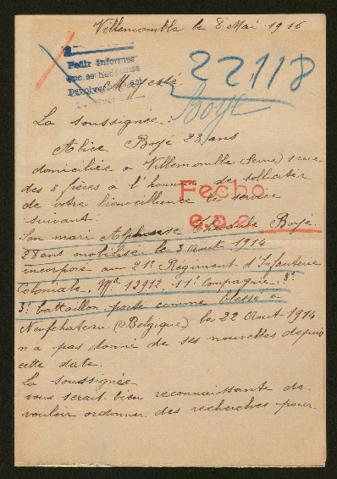 Villemomble le 8 Mai 1916
Pedir informes
que se
Devolver
22118
Majesté
Boyé
La soussignée.
Alice Boyé 28 ans
domiciliée à Villemomble (Seine) 1 rue
des 3 frères a l'honneur de solliciter
de votre bienveillance le service
suivant.
Fecho
Son mari Alphonse Boyé.
28 ans mobilisé le 3 Août 1914
incorporé au 21e Régiment d'Infanterie
Coloniale. Mle 13912. 11e Compagnie. 3e
3e battaillon porté comme blessé à
Neufchateau (Belgique) le 22 Août 1914
n a pas donné de ses nouvelles depuis
cette date.
La soussignée
vous serait bien reconnaissante de
vouloir ordonner des recherches pour